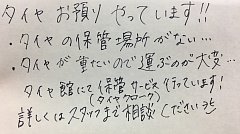 タイヤお預りやっています!!
・タイヤの保管場所がない…
・タイヤが重たいので運ぶのが大変…
タイヤ館にて保管サービス行っています!
(タイヤクローク)
詳しくはスタッフまで相談ください